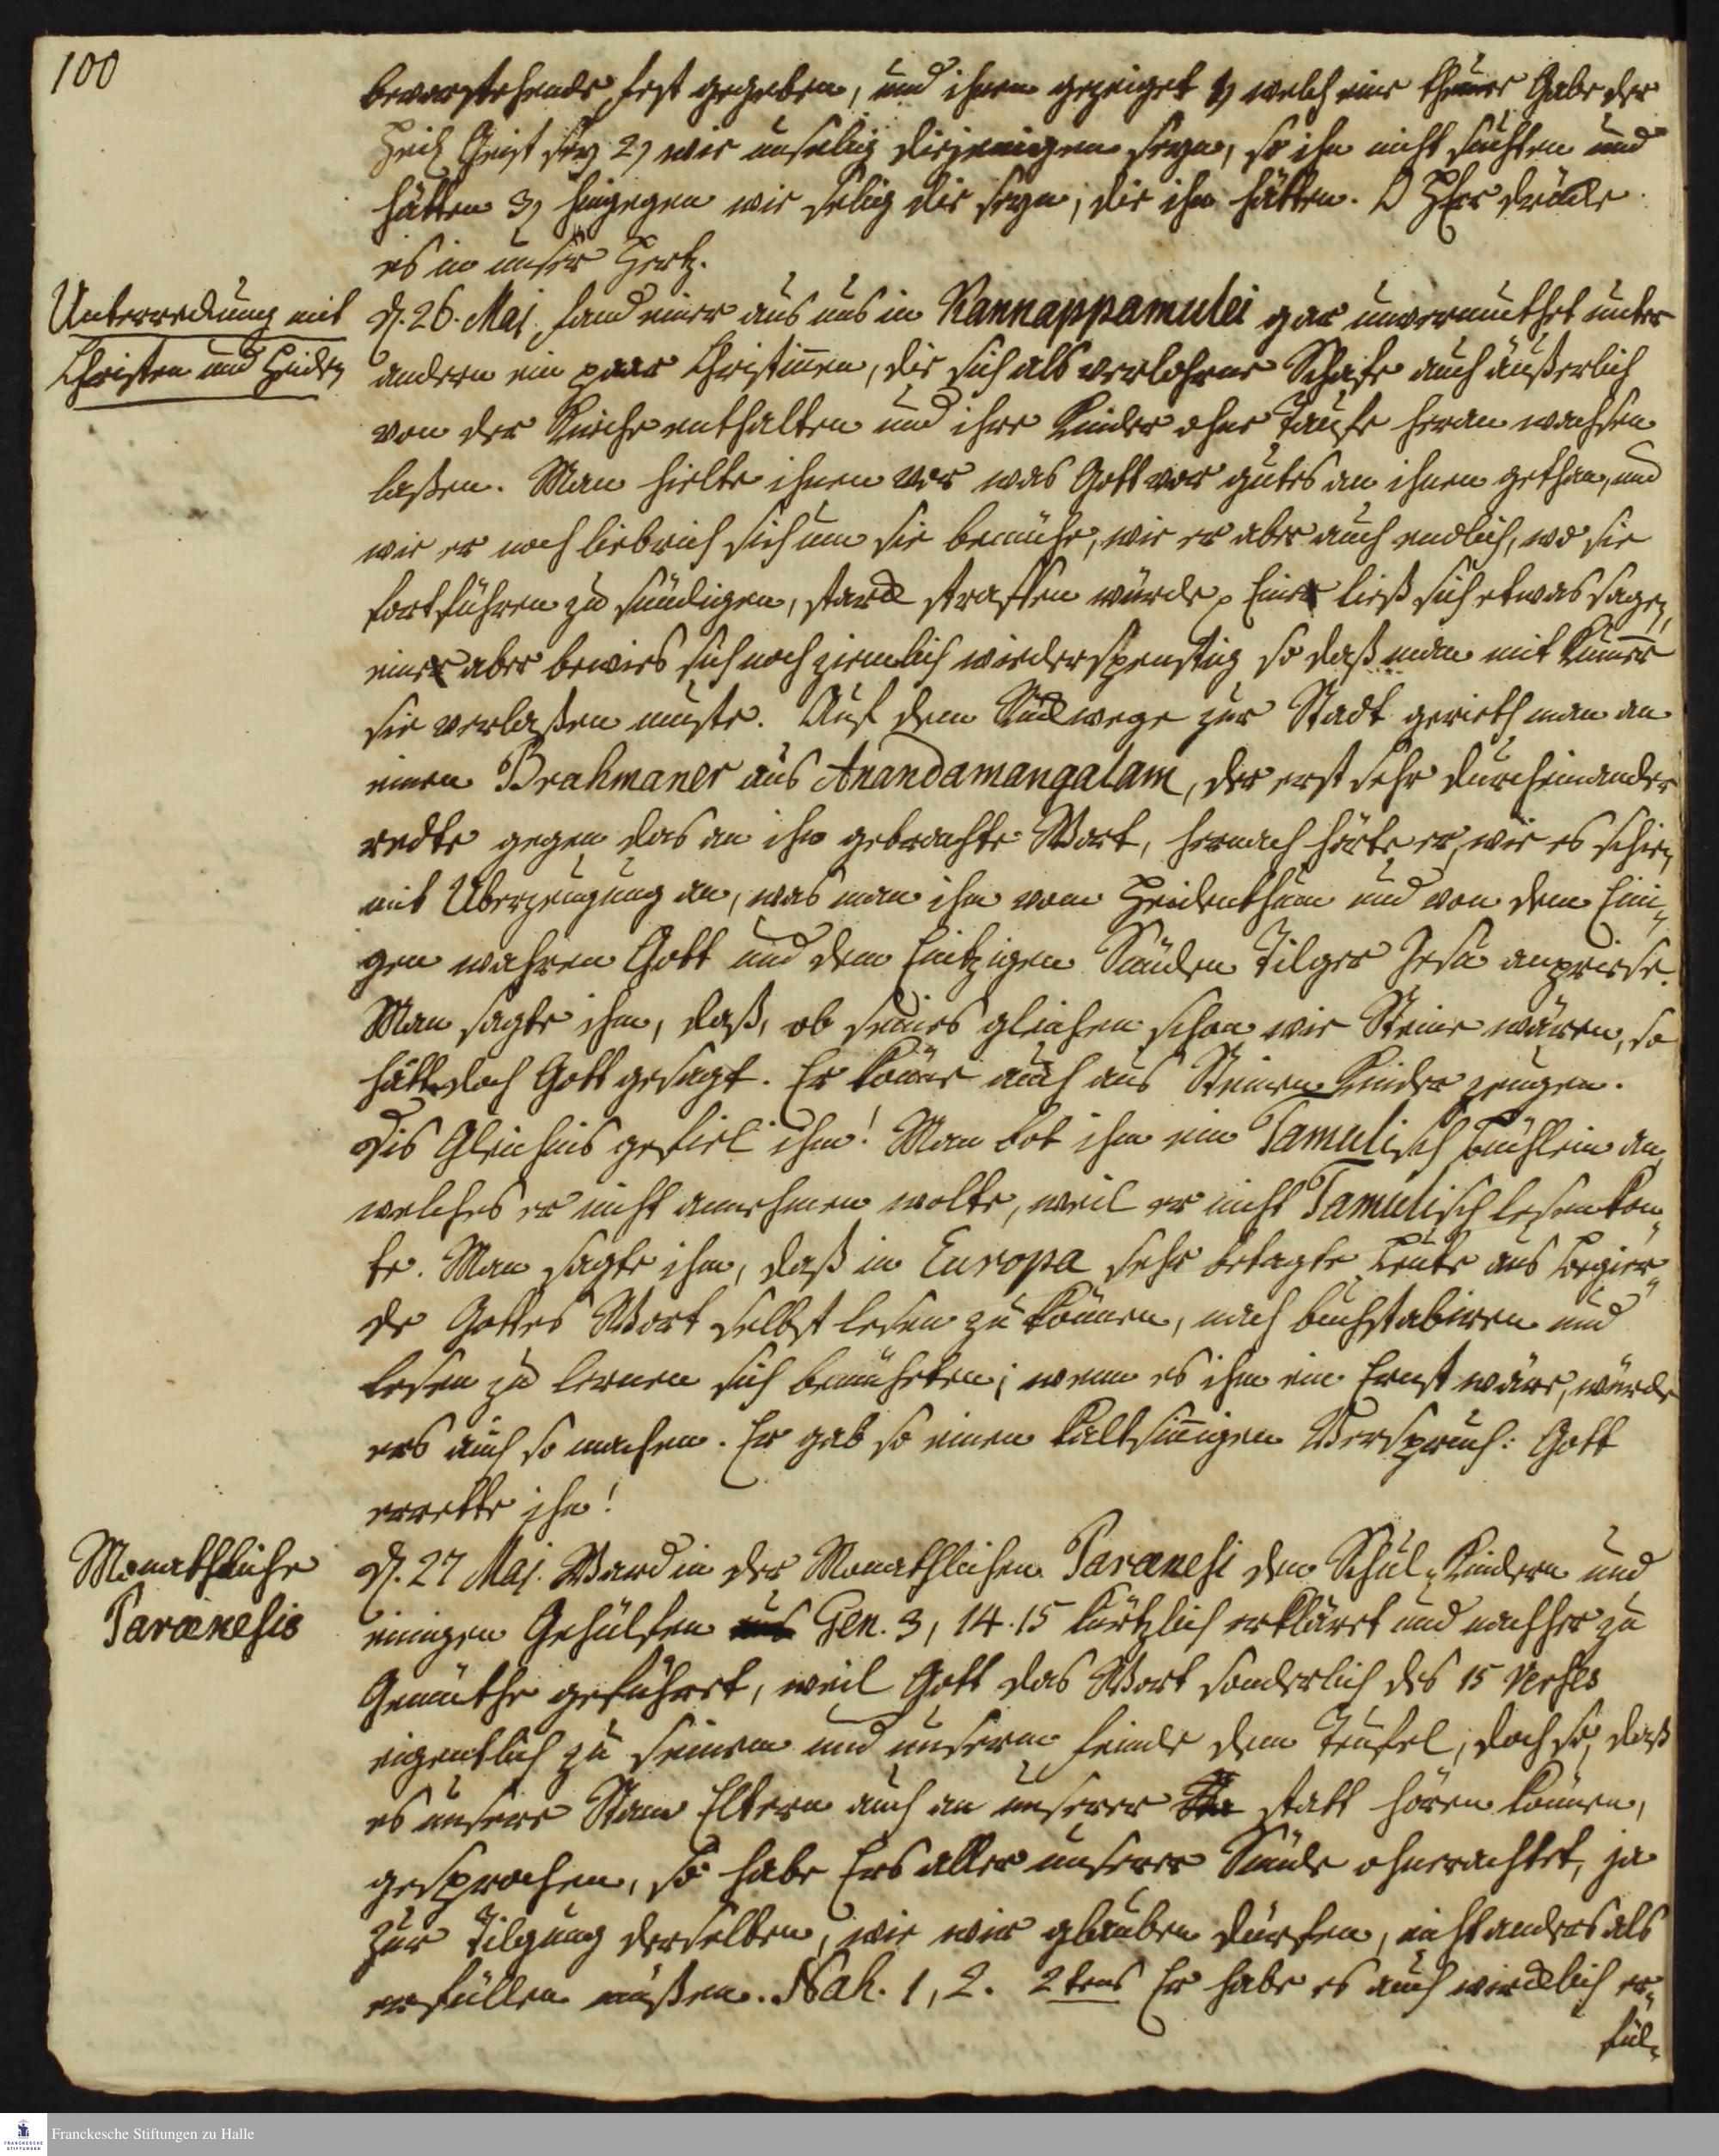 100
bevorstehende Fest gegeben, und ihnen gezeiget 1) welch eine theure Gabe der
Heil. Geist sey 2) wie unselig diejenigen seyn, so ihn nicht suchten und
hätten 3) hingegen wie selig die seyn, die ihn hätten. O HErr drücke
es in unser Hertz.
Unterredung mit
Christen und Heiden
D. 26. Maj. fand einer aus uns in Kannappamulei gar unvermuthet unter
andern ein paar Christinnen, die sich als verlohrne Schafe auch äußerlich
von der Kirche enthalten und ihre Kinder ohne Taufe heran wachsen
laßen. Man hielte ihnen vor was Gott vor gutes an ihnen gethan, und
wie er noch liebreich sich um sie bemühe, wie er aber auch endlich, wo sie
fortführen zu sündigen, starck straffen würde. Eine ließ sich etwas sagen,
eine aber bewies sich noch ziemlich wiederspenstig so daß man mit Kummer
sie verlaßen muste. Auf dem Rückwege zur Stadt gerieth man an
einen Brahmaner aus Anandamangalam, der erst sehr durcheinander
redte gegen das an ihn gebrachte Wort, hernach hörte er, wie es schien,
mit Überzeugung an, was man ihm vom Heidenthum und von dem Eini-
gen wahren Gott und dem Eintzigen Sünden Tilger Jesu anpriese.
Man sagte ihm, daß, ob seines gleichen schon wie Steine wären, so
hätte doch Gott gesagt. Er könne auch aus Steinen Kinder zeugen.
Dis Gleichnis gefiel ihm! Man bot ihm ein Tamulisch Büchlein an,
welches er nicht annehmen wolte, weil er nicht Tamulisch lesen kon-
te. Man sagte ihm, daß in Europa sehr betagte Leute aus Begier-
de Gottes Wort selbst lesen zu können, noch buchstabiren und
lesen zu lernen sich bemüheten; wenn es ihm ein Ernst wäre, würde
ers auch so machen. Er gab so einen kaltsinnigen Verspruch: Gott
errette ihn!
Monathliche
Paraenesis
D. 27 Maj. Ward in der Monathlichen Paraenesi den Schul-Kindern und
einigen Gehülfen Gen. 3, 14. 15 kürtzlich erkläret und nachher zu
Gemüthe geführet, weil Gott das Wort sonderlich des 15 Verses
eigentlich zu seinem und unserm Feinde dem Teufel, doch so, daß
es unsere Stam Eltern auch an unserer statt hören können,
gesprochen, so habe Ers aller unserer Sünde ohnerachtet, ja
zur Tilgung derselben, wie wir glauben dürfen, nicht anders als
erfüllen müßen. Nah. 1, 2. 2tens Er habe es auch wircklich er-
fül-
Franckesche Stiftungen zu Halle